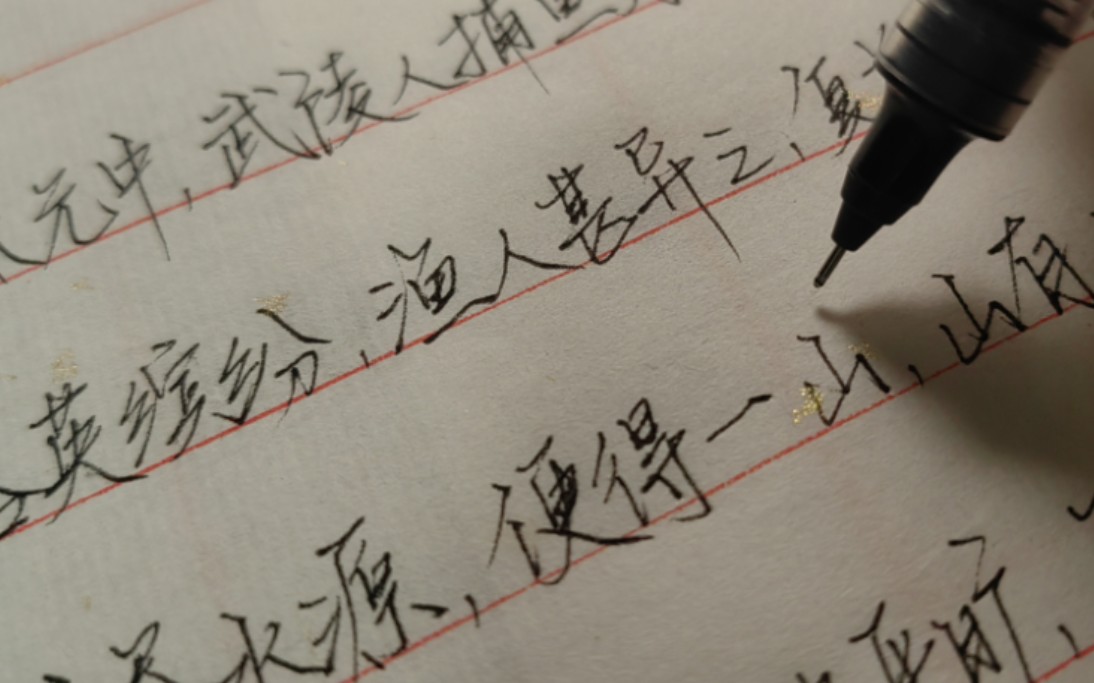 元中,武陵人捕鱼
英缤纷,渔人甚异之,复
水源,便得一山,山有